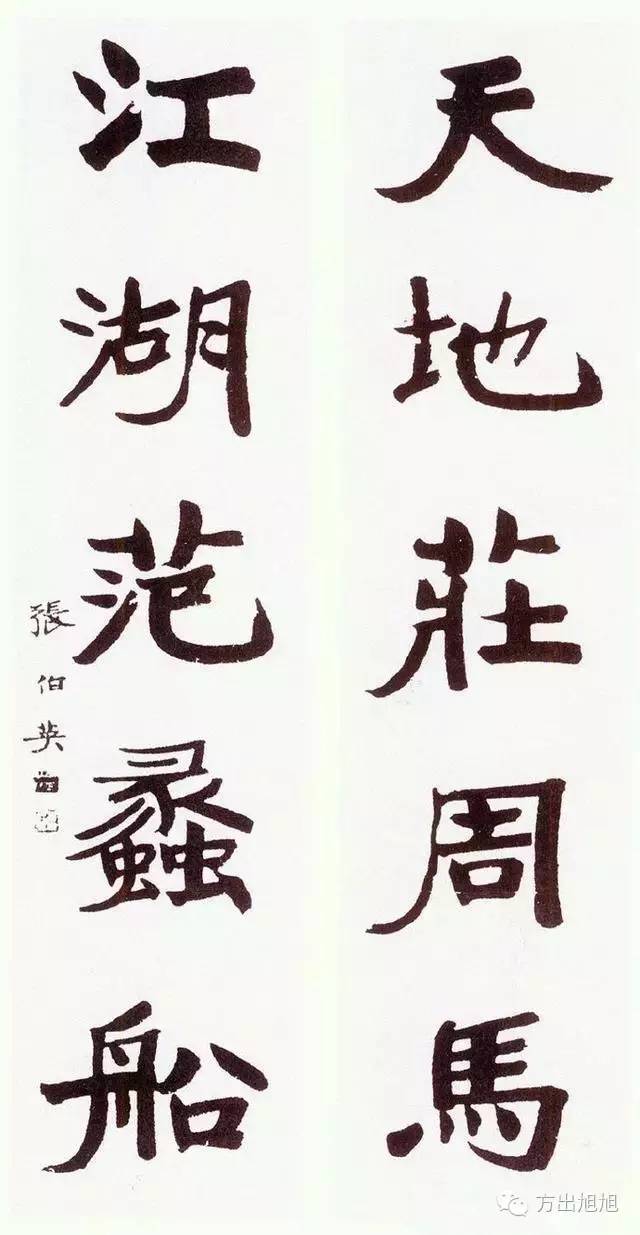 天地莊周馬
江湖范蠡船
張伯英
方出旭旭